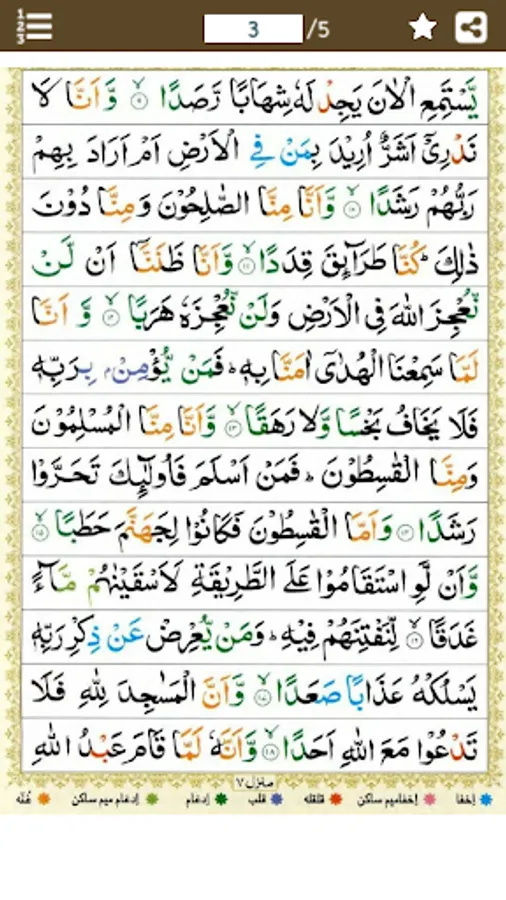 3 /5
يَّسْتَمِعِ الْاٰنَ يَجِدْ لَهٗ شِهَابًا رَّصَدًا ۙ﴿۹﴾ وَّ اَنَّا لَا
نَدْرِیْۤ اَشَرٌّ اُرِیْدَ بِمَنْ فِی الْاَرْضِ اَمْ اَرَادَ بِهِمْ
رَبُّهُمْ رَشَدًا ۙ﴿۱۰﴾ وَّاَنَّا مِنَّا الصّٰلِحُوْنَ وَ مِنَّا دُوْنَ
ذٰلِكَ ؕ كُنَّا طَرَآئِقَ قِدَدًا ۙ﴿۱۱﴾ وَّاَنَّا ظَنَنَّاۤ اَنْ لَّنْ
نُّعْجِزَ اللّٰهَ فِی الْاَرْضِ وَلَنْ نُّعْجِزَهٗ هَرَبًا ۙ﴿۱۲﴾ وَّ اَنَّا
لَمَّا سَمِعْنَا الْهُدٰۤی اٰمَنَّا بِهٖ ؕ فَمَنْ یُّؤْمِنْۢ بِرَبِّهٖ
فَلَا یَخَافُ بَخْسًا وَّلَا رَهَقًا ۙ﴿۱۳﴾ وَّاَنَّا مِنَّا الْمُسْلِمُوْنَ
وَمِنَّا الْقٰسِطُوْنَ ؕ فَمَنْ اَسْلَمَ فَاُولٰٓئِكَ تَحَرَّوْا
رَشَدًا ﴿۱۴﴾ وَاَمَّا الْقٰسِطُوْنَ فَكَانُوْا لِجَهَنَّمَ حَطَبًا ۙ﴿۱۵﴾
وَّاَنْ لَّوِ اسْتَقَامُوْا عَلَی الطَّرِیْقَةِ لَاَسْقَیْنٰهُمْ مَّآءً
غَدَقًا ۙ﴿۱۶﴾ لِّنَفْتِنَهُمْ فِیْهِ ؕ وَمَنْ یُّعْرِضْ عَنْ ذِكْرِ رَبِّهٖ
یَسْلُكْهُ عَذَابًا صَعَدًا ۙ﴿۱۷﴾ وَّاَنَّ الْمَسٰجِدَ لِلّٰهِ فَلَا
تَدْعُوْا مَعَ اللّٰهِ اَحَدًا ۙ﴿۱۸﴾ وَّاَنَّهٗ لَمَّا قَامَ عَبْدُ اللّٰهِ
منزل ۷
اِخفا اِخفامیم ساکن قلقله قلب اِدغام اِدغام میم ساکن غُنّه